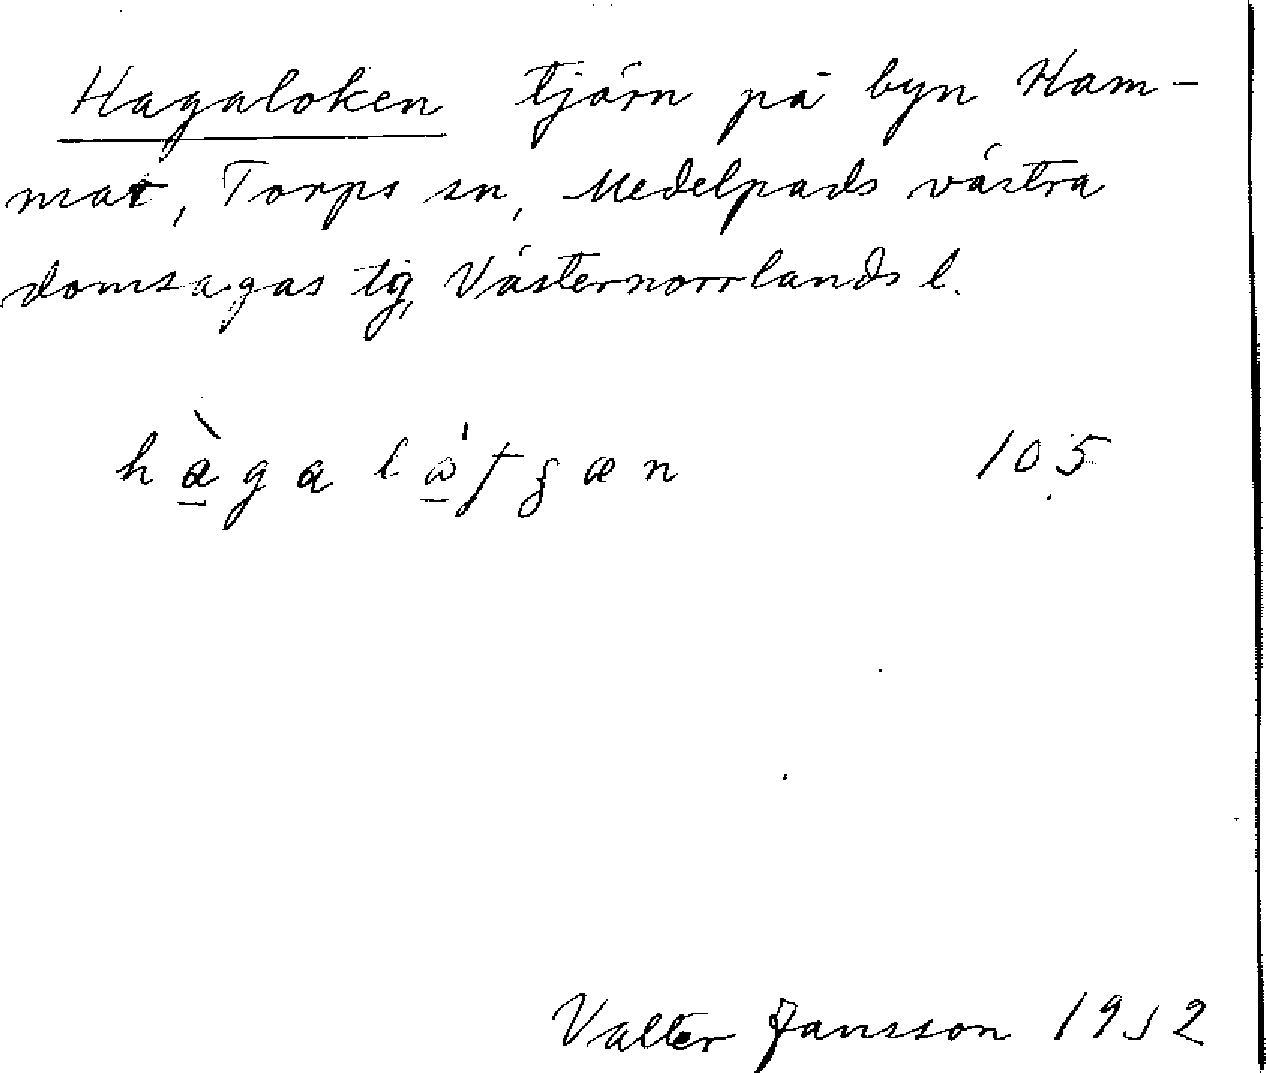 Hagaloken tjärn på byn Ham-
mat, Torps sn, Medelpads västra
domsagas tg, Västernorrlands l.
105
Valter Jansson 1952